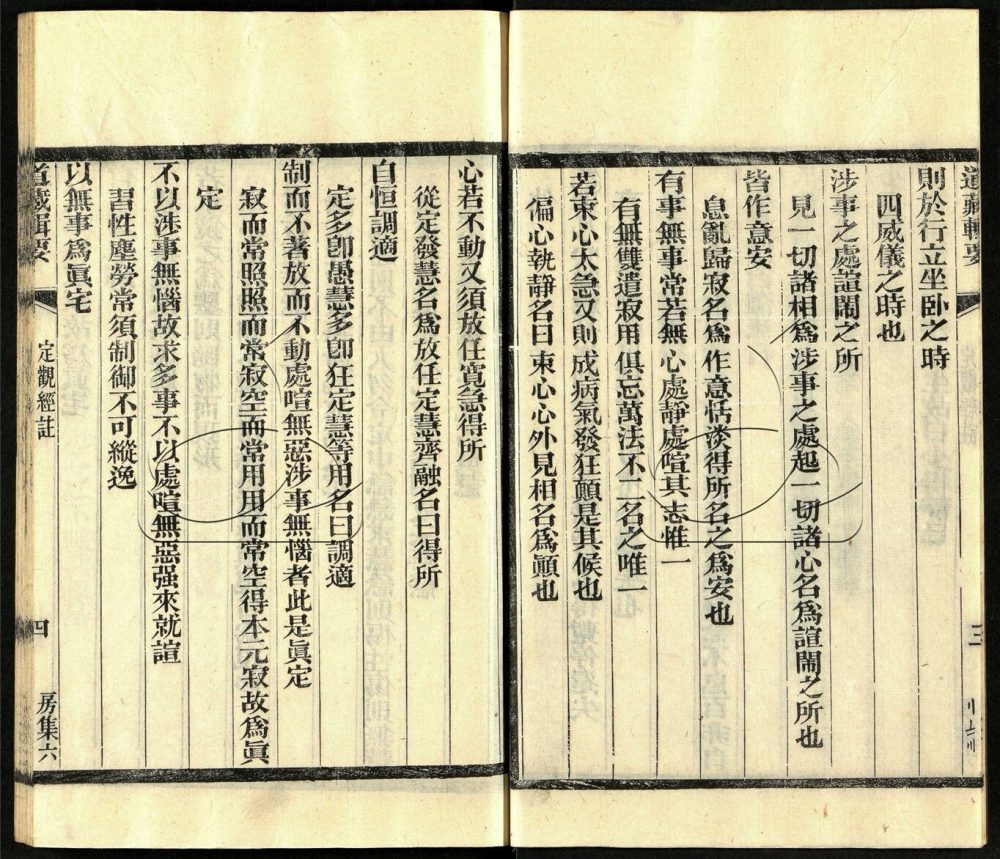 道藏輯要
三
則於行立坐臥之時
四威儀之時也
涉事之處諠閙之所
見一切諸相爲涉事之處起一切諸心名爲諠閙之所也
皆作意安
息亂歸寂名爲作意恬淡得所名之爲安也
有事無事常若無心處靜處喧其志惟一
有無雙遣寂用俱忘萬法不二名之唯一
若束心太急又則成病氣發狂顚是其候也
偏心執靜名曰束心心外見相名爲顚也
心若不動又須放任寬急得所
從定發慧名爲放任定慧齊融名曰得所
自恒調適
定多卽愚慧多卽狂定慧等用名曰調適
制而不著放而不動處喧無惡涉事無惱者此是眞定
寂而常照照而常寂空而常用用而常空得本元寂故爲眞
定
不以涉事無惱故求多事不以處喧無惡强來就諠
習性塵勞常須制御不可縱逸
以無事爲眞宅
道藏輯要
定觀經註
四
房集六